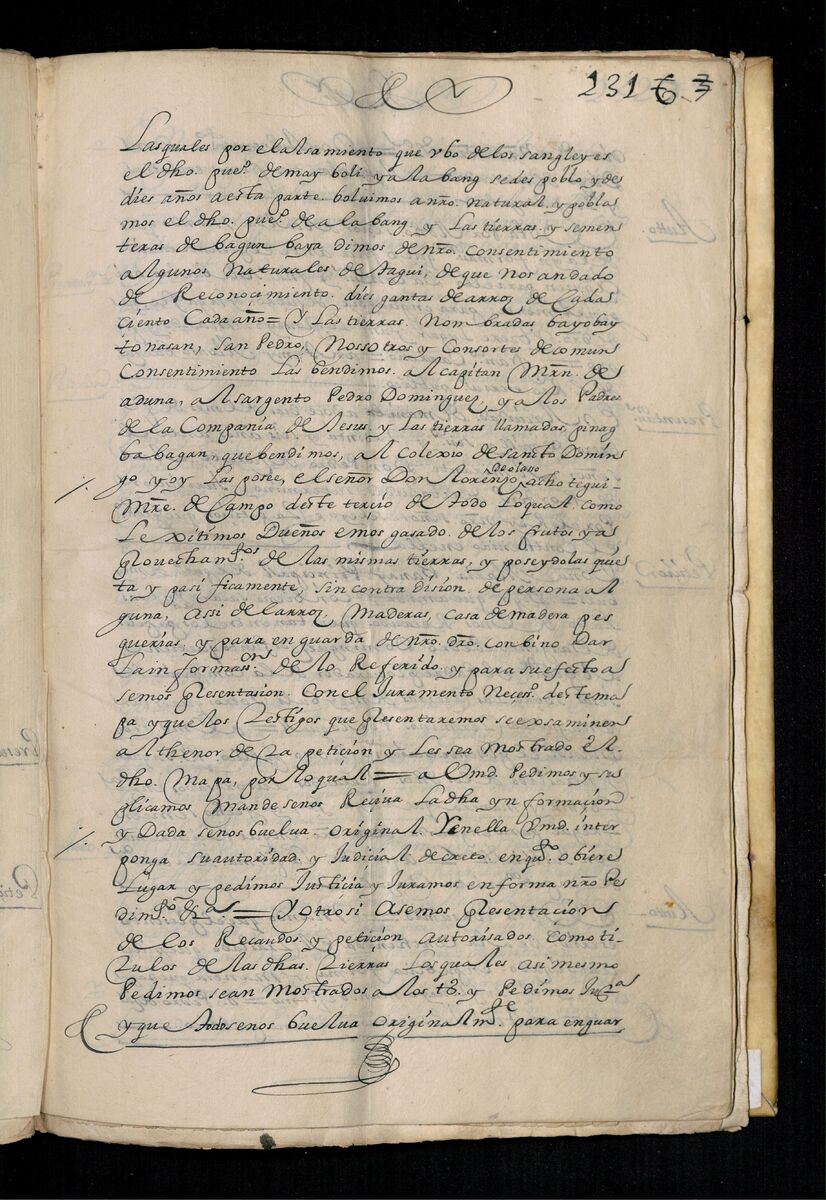 231 6. 3
Lasquales por el alsamiento que ybo de los sangleyes
el dho. pueº. de may boli. yalabang sedes poblo, y des
dies años aesta parte. boluimos anrõ. natural. y pobla
mos el dho. pueº. de alabang, y Las tierras. y semen
teras de bagun baya dimos de nrõ. Consentimiento
algunos Naturales de taqui, de que nos andado
de Reconocimiento. dies gantas de arroz de Cada
ciento Cada año= Y Las tierras. Nombradas bayobay
tonasan, san Pedro, Nossotros y Consortes de comun
Consentimiento Las bendimos. al capitan Mrñ. de
aduna, al sargento Pedro Dominguez, y a los Padres
de la Compania de Jesus. y Las tierras llamadas, pinag
babagan, quebendimos, al Colexio de sancto Domin
go y oy Las posee, el señor Don lorenso de olaso achotegui-
Mrẽ. de Campo deste tercio de todo Loqual como
Lexitimos Dueños emos gasado. de los frutos y a
prouechamºs de las mismas tierras, y poseydolas quie
ta y pasificamente, sin contradision. de persona al
guna, assi del arroz, Maderas, casa de madera pes
querias, y para en guarda de nrõ. drõ. conbino Dar
La informasons. de lo Referido. y para su efecto a
semos presentasion. Con el Juramento Neçesº. deste ma
pa y que los testigos que presentaremos se exsaminen
al thenor de la petición y Les sea mostrado el
dho. Mapa, por loqual = a Vmd. Pedimos y su
plicamos Mande senos Reciva La dha yn formacion
y Dada senos buelua. original. Yenella Vmd. inter
ponga su autoridad. y Judicial decreto. en quºo obiere
Lugar y pedimos Justicia y Juramos en forma nrõ Pe
dimº & as. = Y otrosi Asemos presentacion
de los Recaudos. y petición autorisados. Como ti-
tulos de las dhas. tierras Los quales asi mesmo
Pedimos sean mostrados a los tºs. y Pedimos Juzªa
y que todo senos buelua originalmte. para enguar